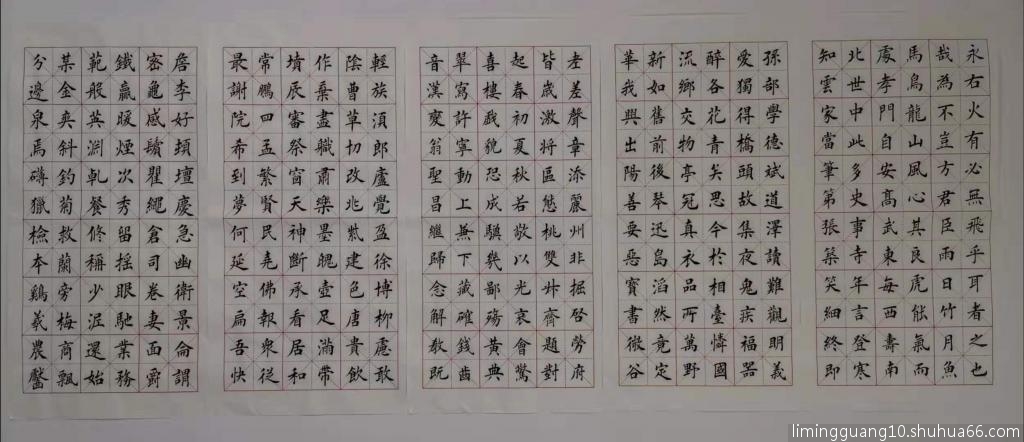 永右火有必無飛乎耳者之也
哉為不豈方君臣雨日竹月魚
馬鳥龍山風心其良虎能氣而
處孝門自安高武東每西壽南
北世中此多史事寺年言登寒
知雲家當筆第張築笑細終即
孫部學德斌道澤讀難觀明義
愛獨得橋頭故集夜鬼疾福器
醉各花青矣思今於相臺憐國
流鄉交物亭冠真衣品所萬野
新如舊前後琴迅島滔然竟定
華我興出陽善要惡寶書微谷
老差聲章添麗州非掘啓勞府
皆歲激將區愁桃雙廾齊題對
起春初夏秋若敬以光哀會驚
喜樓戲貌忍成驥幾鄙殤黃典
翠寫許寧動上無下藏確錢酋
音漢變翁聖昌繼歸念解教既
輕族須郎盧覺盈徐博柳慮敢
陰曹草切改兆紫建色唐貴飲
作棄盡職肅樂墨魄壺足滿帶
墳辰審祭窗天神斷承看居和
常鵬四孟繁賢民堯佛報衆從
最謝院希到夢何延空扁吾快
詹李好壇慶急幽衛景侖謂
容龜感鬚瞿繩倉司卷妻面爵
鐵贏暖煙次秀留摇眼馳業務
範般英淵乹餐修稱少泥還始
某金奕斜釣菊救蘭旁梅商飄
分邊泉焉磚獵檢本鷄義農鑿
limingguang10.shuhua66.com